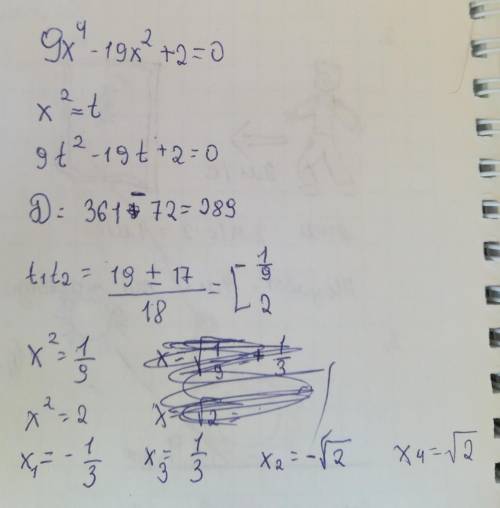 9x⁴ - 19x² + 2 = 0
x² = t
9t² - 19t + 2 = 0
D = 361 - 72 = 289
t₁t₂ = (19 ± 17)/18 = [ 1/9 2
x² = 1/9
x² = 2
x₁ = -1/3 x₃ = 1/3 x₂ = -√2 x₄ = √2